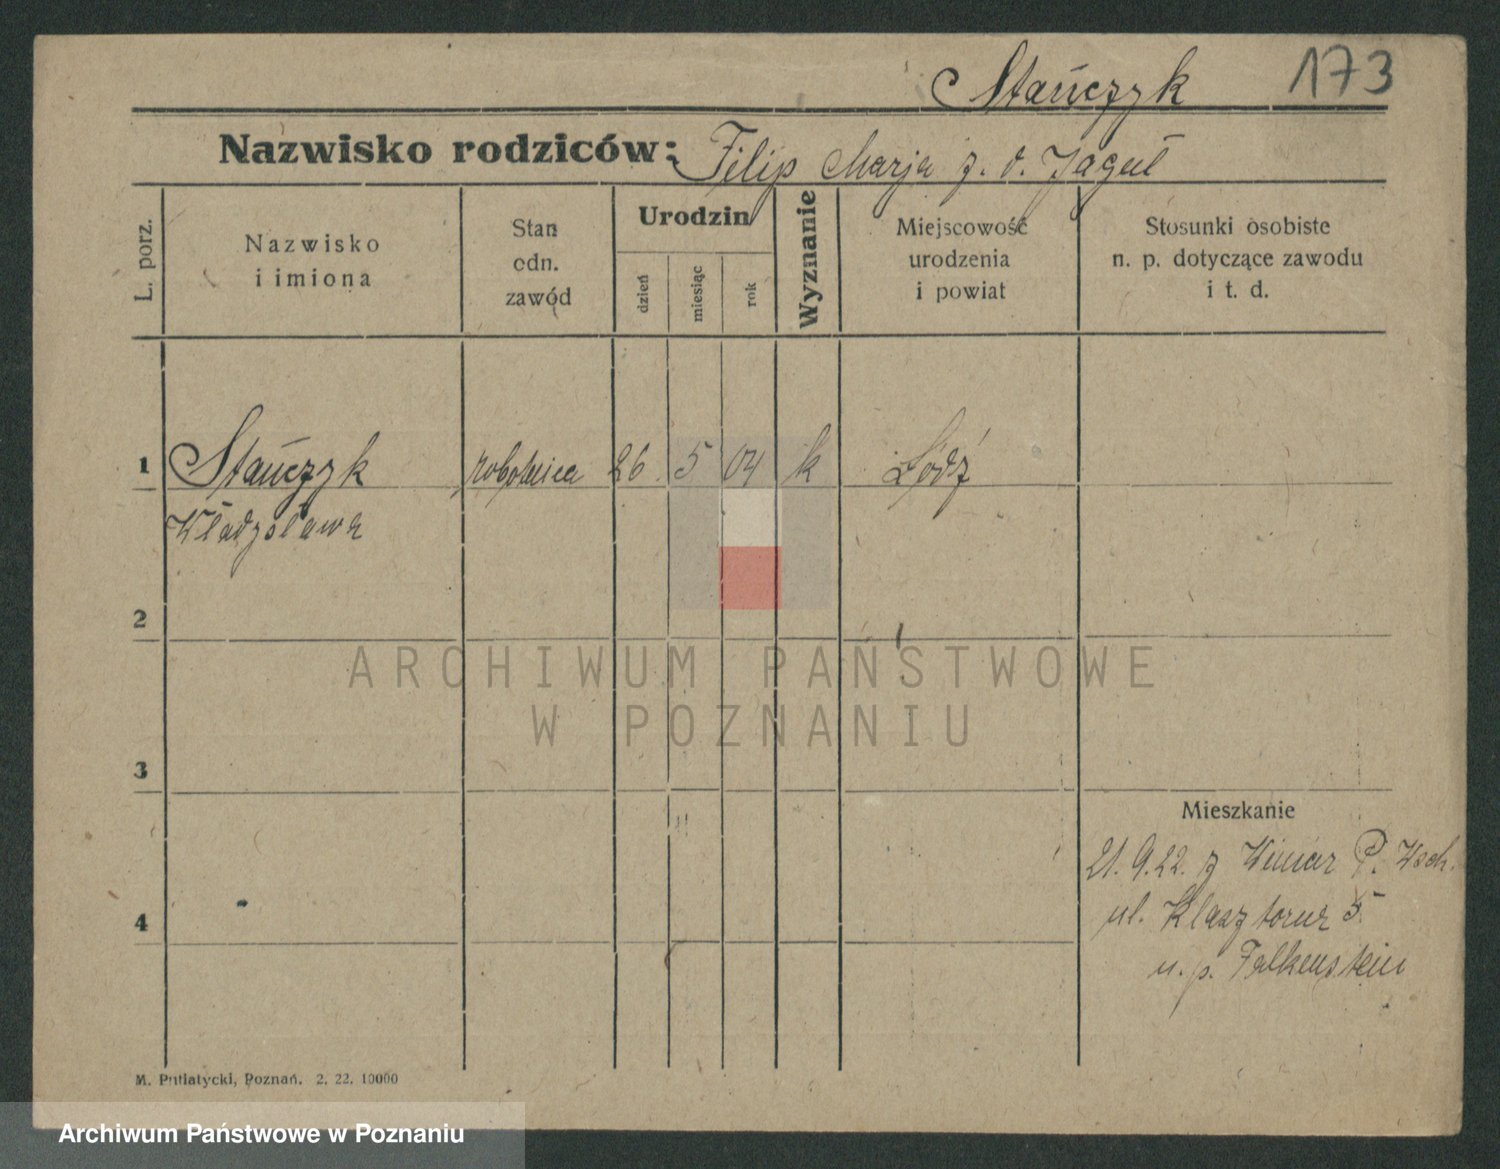 Stańczyk 173
Nazwisko rodziców: Filip Marja z. d. Jaguł
L. porz.
Nazwisko
i imiona
Stan
odn.
zawód
Urodzin
dzień
miesiąc
rok
Wyznanie
Miejscowość
urodzenia
i powiat
Stosunki osobiste
n. p. dotyczące zawodu
i t. d.
1 Stańczyk robotnica 26 5 04 k Łódź
Władysława
2
ARCHIWUM PAŃSTWOWE
W POZNANIU
3
Mieszkanie
21. 9. 22. z P. Wsch.
4 ul. Klasztorna 5
u. p. Falkenstein
M. Putiatycki, Poznań. 2. 22. 10000
Archiwum Państwowe w Poznaniu